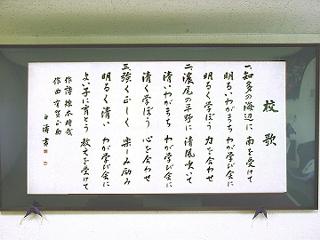 校歌
一、知多の海辺に 南を受けて
明るいわがまち わが学び舎に
明るく学ぼう 力を合わせ
二、濃尾の平野に 清風吹いて
清いわがまち わが学び舎に
清く学ぼう 心を合わせ
三、強く正しく 楽しみ励み
明るく清い わが学び舎に
よい子に育とう 教えを受けて
作詩
作曲
書